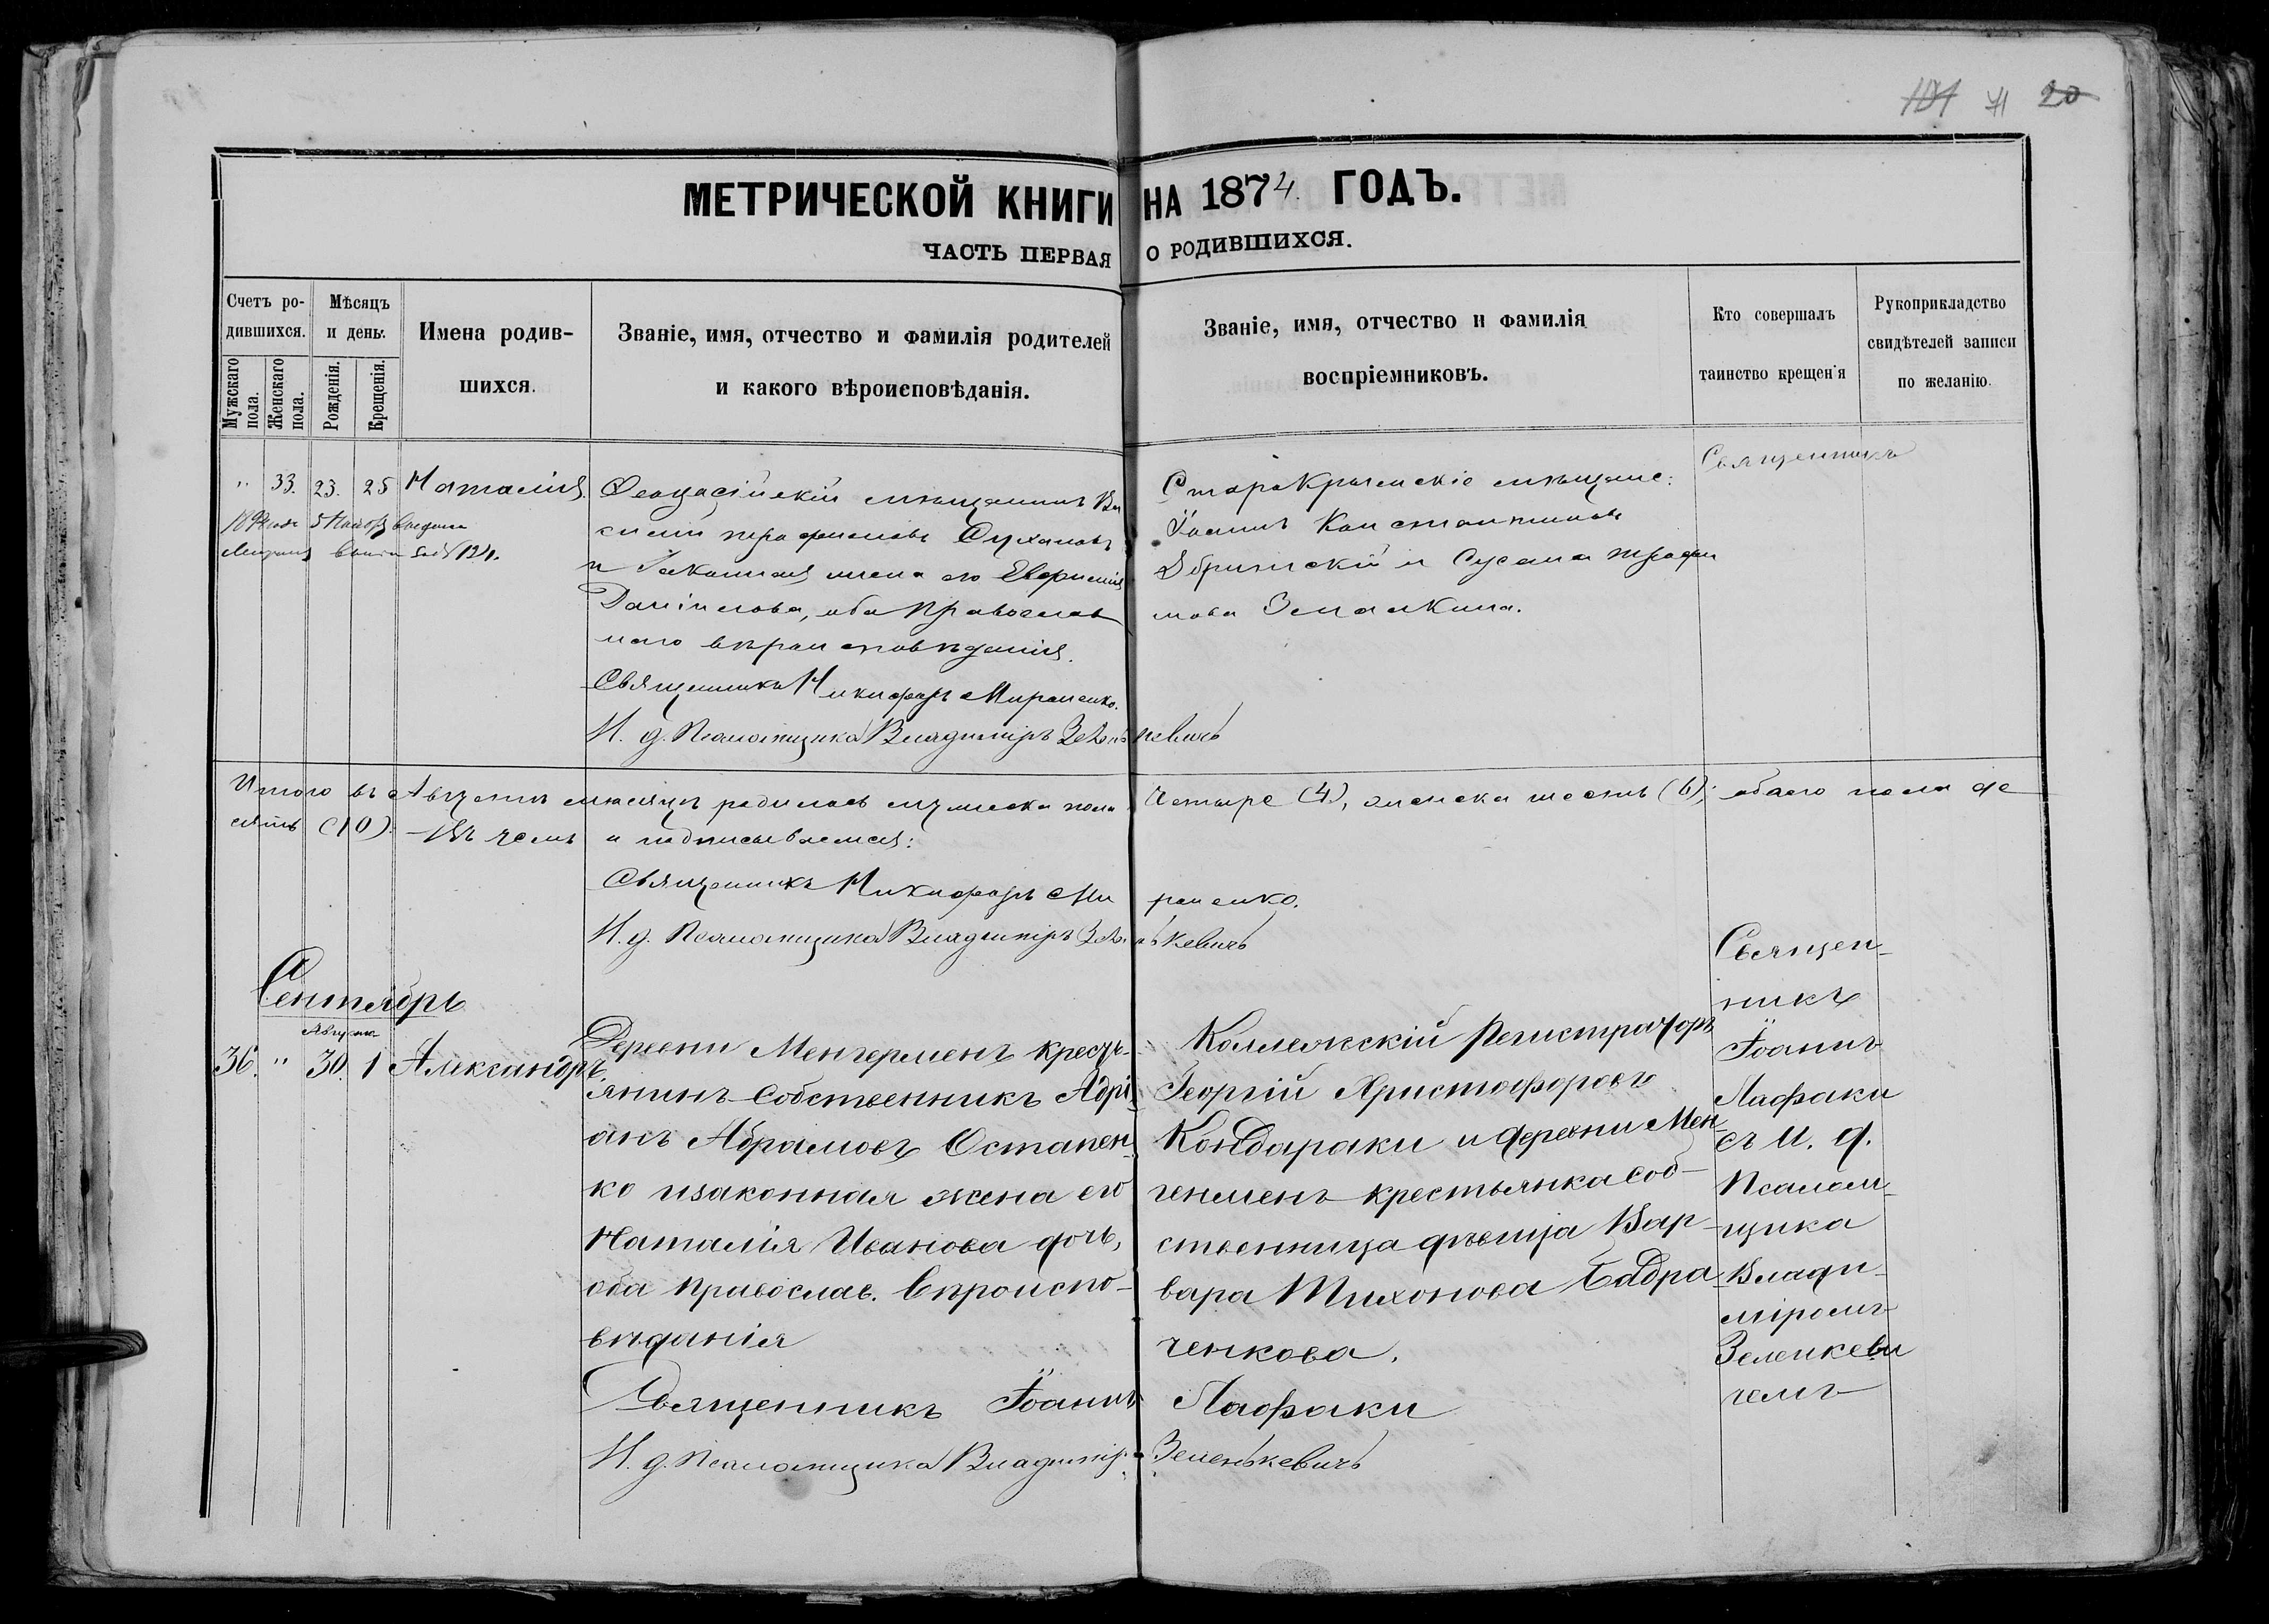 101 71 20
МЕТРИЧЕСКОЙ КНИГИ НА 1874 ГОДЪ.
ЧАСТЬ ПЕРВАЯ О РОДИВШИХСЯ.
Счетъ ро-
дившихся.
Мужскаго пола.
Женскаго пола.
Мѣсяцъ
и день.
Рожденія.
Крещенія.
Имена родив-
шихся.
Званіе, имя, отчество и фамилія родителей
и какого вѣроисповѣданія.
Званіе, имя, отчество и фамилія
воспріемниковъ.
Кто совершалъ
таинство крещенія
Рукоприкладство
свидѣтелей записи
по желанію.
" 33. 23. 25 Наталія.
№ 124.
Феодосійскій мѣщанинъ Ва
силій Трофимовъ Сухановъ
и Законная жена его Евфимія
Даніилова, оба Православ
наго вѣроисповѣданія.
Священникъ Никифоръ Мироненко.
И. д. Псаломщика Владиміръ Зеленькевичъ
СтароКрымскіе мѣщане:
Іоаннъ Константиновъ
и Сусана Трофи
мова
Священникъ
Итого въ Августѣ мѣсяцѣ родилось мужеска пола Четыре (4), женска шесть (6); обаего пола де
сять (10). Въ чемъ и подписываемся:
Священникъ Никифоръ Мироненко.
И. д. Псаломщика Владиміръ Зеленькевичъ
Сентябрь
Августа
36. " 30. 1 Александръ
Деревни Менгерменъ кресть-
янинъ-Собственникъ Адрі-
анъ Абрамовъ Остапен-
ко и законная жена его
Наталія Иванова дочь,
оба православ. вѣроиспо-
вѣданія
Священникъ Іоаннъ Лафаки
И. д. Псаломщика Владиміръ Зеленькевичъ
Коллежскій Регистраторъ
Георгій Христофоровъ
Кондараки и деревни Мен-
генменъ крестьянка соб-
ственница дѣвица Вар-
вара Тихонова Бадра
ченкова.
Священ-
никъ
Іоаннъ
Лафаки
съ И. д.
Псалом-
щика
Влади-
міромъ
Зеленкеви
чемъ